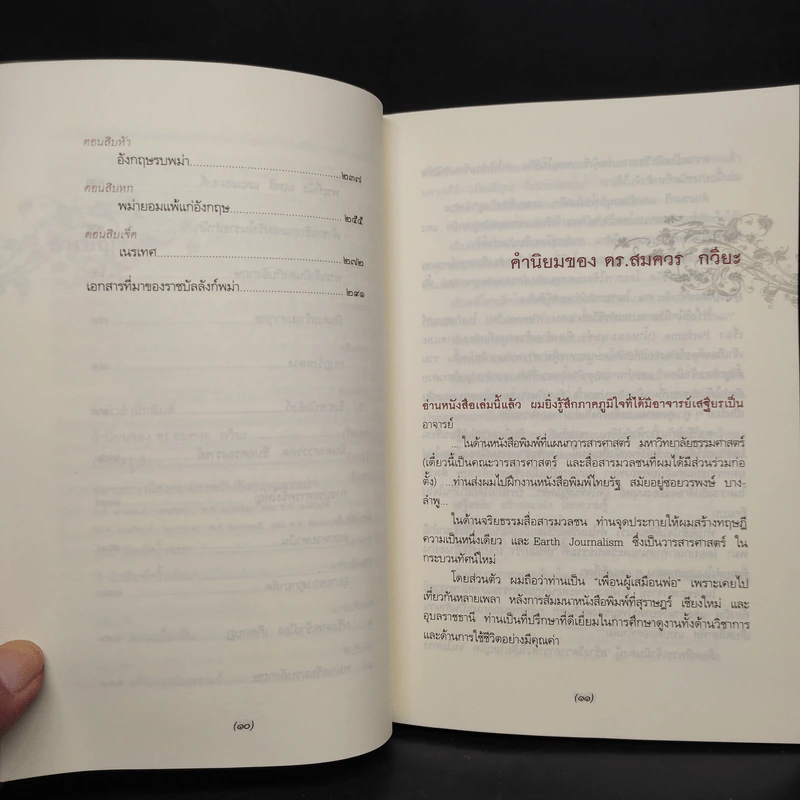 ตอนสิบห้า
อังกฤษรบพม่า................................๒๓๗
ตอนสิบหก
พม่ายอมแพ้แก่อังกฤษ......................๒๕๕
ตอนสิบเจ็ด
เนรเทศ........................................๒๗๒
เอกสารที่มาของราชบัลลังก์พม่า..................๒๙๑
(๑๐)
คำนิยมของ ดร.สมควร กวียะ
อ่านหนังสือเล่มนี้แล้ว ผมยิ่งรู้สึกภาคภูมิใจที่ได้มีอาจารย์เสฐียรเป็น
อาจารย์
... ในด้านหนังสือพิมพ์ที่แผนกวารสารศาสตร์ มหาวิทยาลัยธรรมศาสตร์
(เดี๋ยวนี้เป็นคณะวารสารศาสตร์ และสื่อสารมวลชนที่ผมได้มีส่วนร่วมก่อ
ตั้ง) ...ท่านส่งผมไปฝึกงานหนังสือพิมพ์ไทยรัฐ สมัยอยู่ซอยวรพงษ์ บาง-
ลำพู...
ในด้านจริยธรรมสื่อสารมวลชน ท่านจุดประกายให้ผมสร้างทฤษฎี
ความเป็นหนึ่งเดียว และ Earth Journalism ซึ่งเป็นวารสารศาสตร์ ใน
กระบวนทัศน์ใหม่
โดยส่วนตัว ผมถือว่าท่านเป็น "เพื่อนผู้เสมือนพ่อ" เพราะเคยไป
เที่ยวกันหลายเพลา หลังการสัมมนาหนังสือพิมพ์ที่สุราษฎร์ เชียงใหม่ และ
อุบลราชธานี ท่านเป็นที่ปรึกษาที่ดีเยี่ยมในการศึกษาดูงานทั้งด้านวิชาการ
และด้านการใช้ชีวิตอย่างมีคุณค่า
(๑๑)